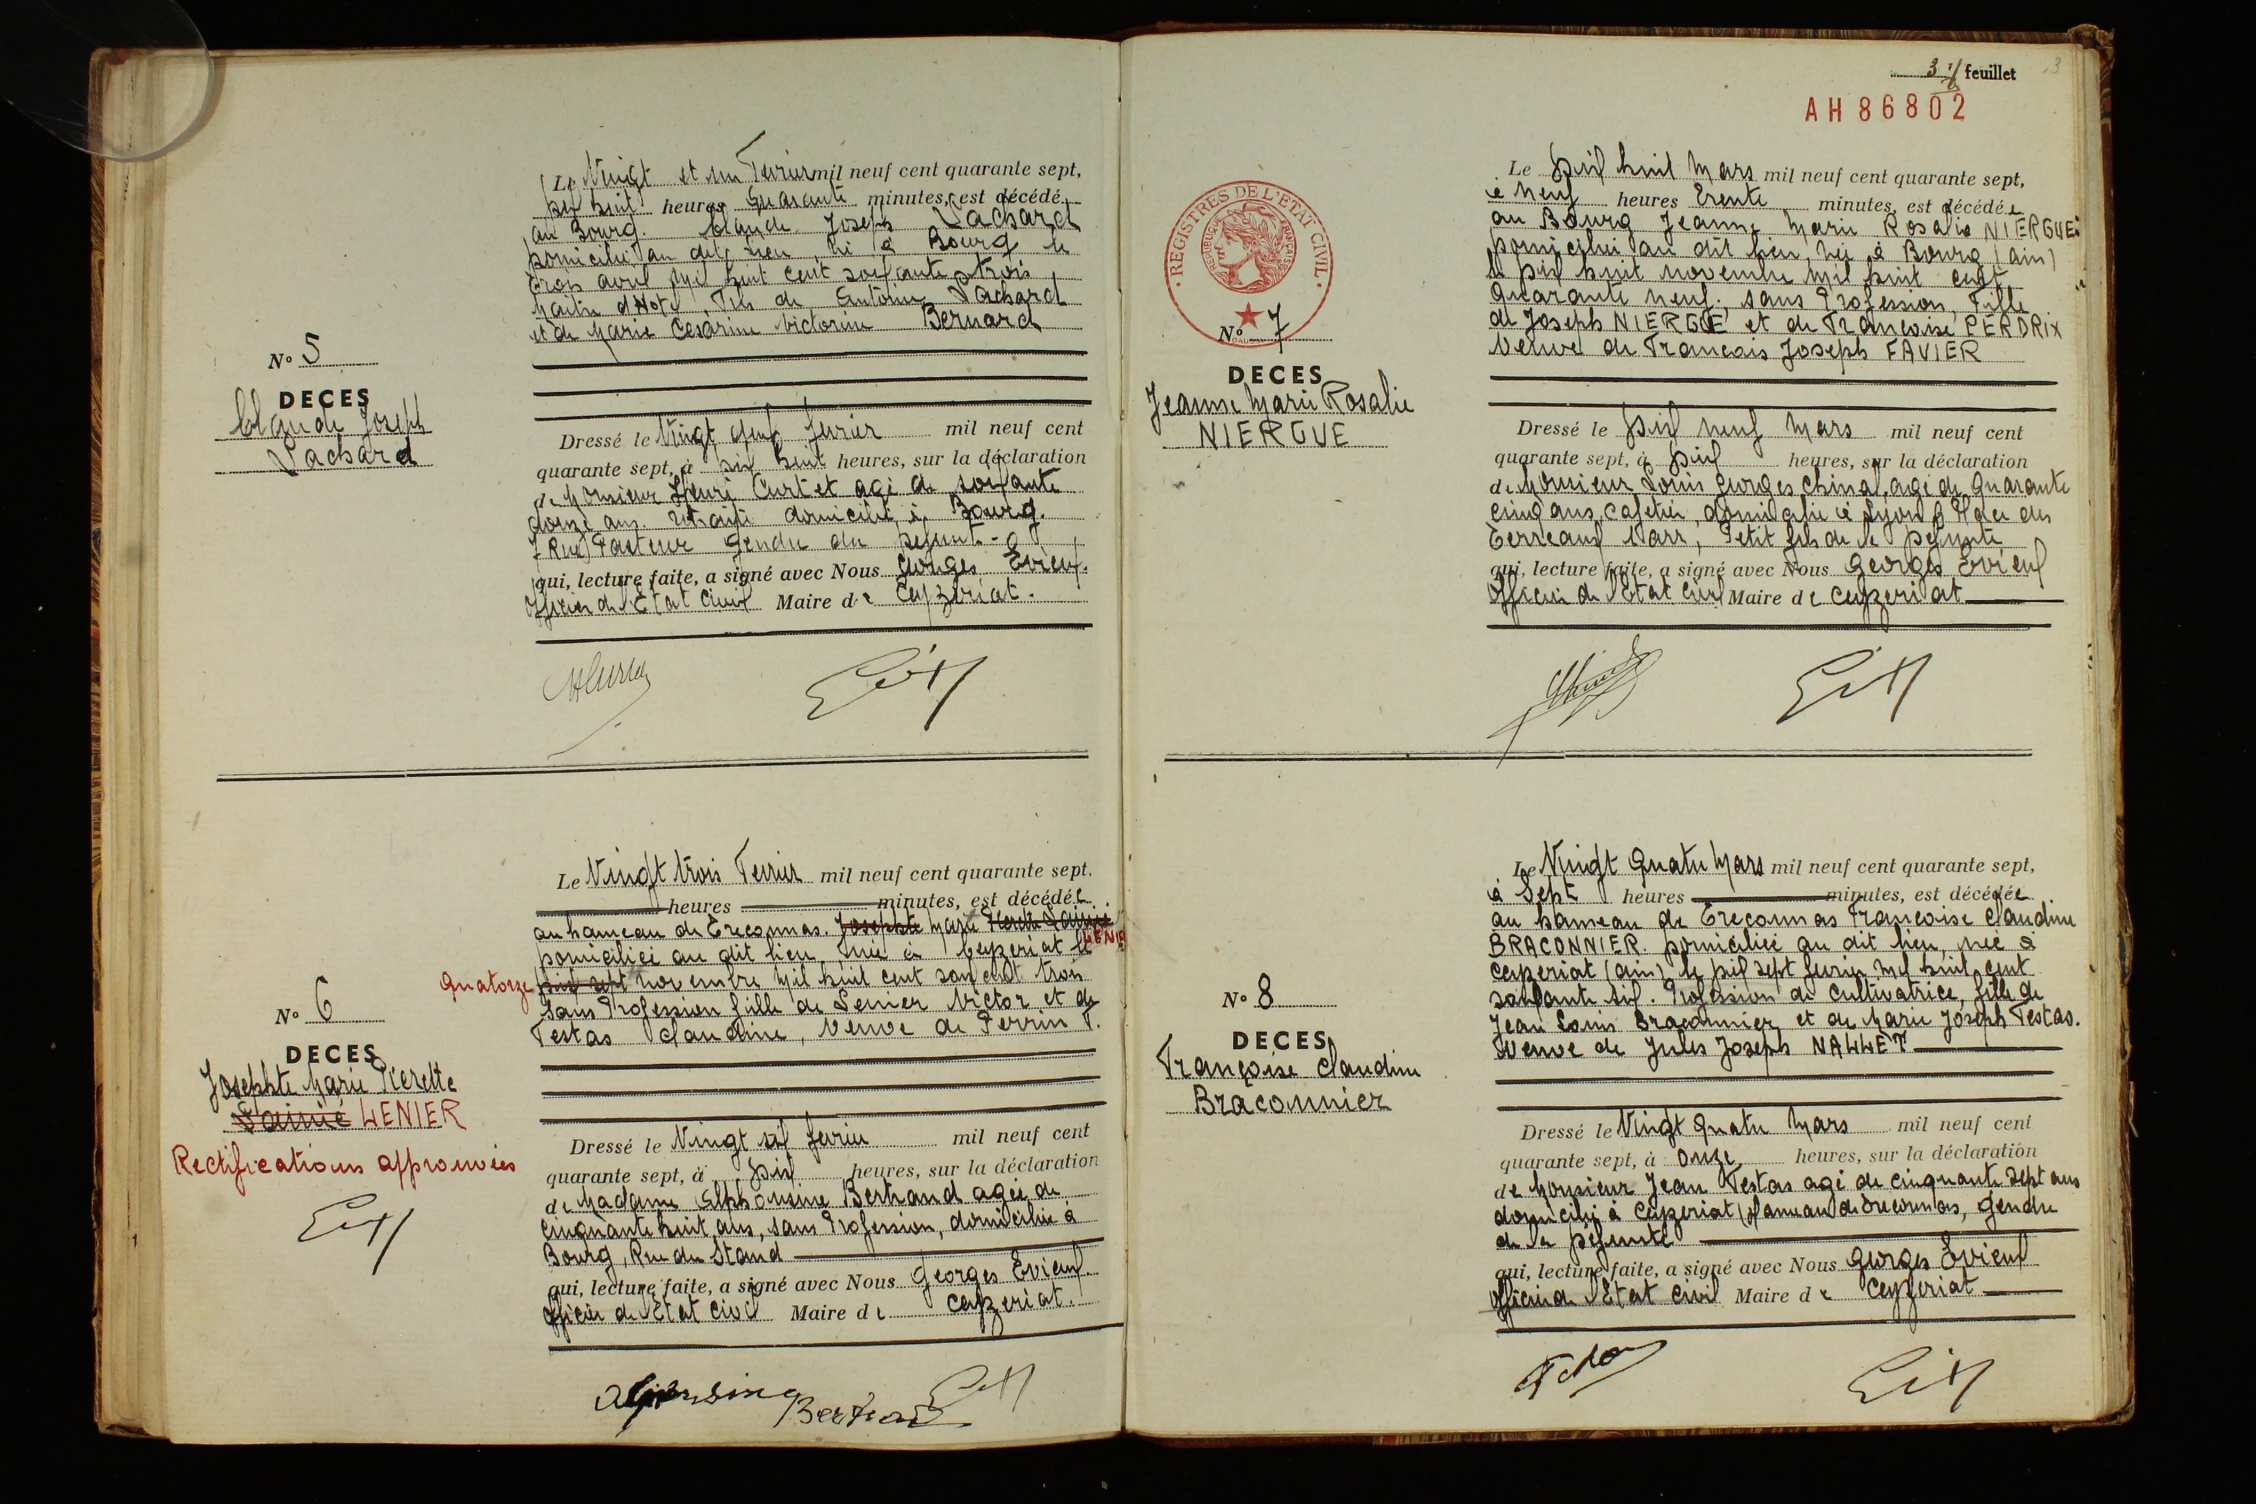 Le Vingt et un Fevrier mil neuf cent quarante sept,
dix huit heures Quarante minutes, est décédé
au Bourg. Claude Joseph Lachard
Domicilié au dit lieu né à Bourg le
trois avril Mil huit cent soixante trois
Maitre d'Hotel Fils de Antoine Lachard
et de Marie Césarine Victorine Bernard
N° 5
DECES
Claude Joseph
Lachard
Dressé le Vingt deux fevrier mil neuf cent
quarante sept, à dix huit heures, sur la déclaration
de Monsieur Henri Curtet agé de soixante
douze ans. retraité domicilié à Bourg.
7 Rue Pasteur Gendre du Defunt
qui, lecture faite, a signé avec Nous Georges Evieux.
Officier de l'Etat Civil Maire de Ceyzeriat.
Le Vingt trois Fevrier mil neuf cent quarante sept.
heures minutes, est décédée
au hameau de Treconnas. Josephte Marie
LENIER
domiciliée au dit lieu, née à Ceyzeriat le
Quatorze dix sept novembre Mil huit cent soixante trois
Sans Profession fille de Lenier Victor et de
Testas Claudine, Veuve de Perrin F.
N° 6
DECES
Josephte Marie Pierette
Lainié LENIER
Rectifications approuvées
Dressé le Vingt six fevrier mil neuf cent
quarante sept, à Dix heures, sur la déclaration
de Madame Alphonsine Bertrand agée de
cinquante huit ans, sans Profession, domiciliée à
Bourg, Rue du Stand
qui, lecture faite, a signé avec Nous Georges Evieux.
Officier de l'Etat Civil Maire de Ceyzeriat.
Alphonsine
Bertrand
3 feuillet
AH 86802
REGISTRES DE L'ETAT CIVIL
REPUBLIQUE FRANÇAISE
Le Dix huit Mars mil neuf cent quarante sept,
à Neuf heures Trente minutes, est décédée
au Bourg Jeanne Marie Rosalie NIERGUE
Domiciliée au dit lieu, née à Bourg (ain)
le Dix huit novembre Mil huit cent
Quarante neuf. sans Profession, Fille
de Joseph NIERGUE et de Françoise PERDRIX
Veuve de François Joseph FAVIER
N° 7
DECES
Jeanne Marie Rosalie
NIERGUE
Dressé le Dix neuf Mars mil neuf cent
quarante sept, à Dix heures, sur la déclaration
de Monsieur Louis Georges Chinal, agé de Quarante
cinq ans, cafetier, domicilié à Lyon 8 Place des
Terreaux Marr, Petit fils de la Défunte
qui, lecture faite, a signé avec Nous Georges Evieux
Officier de l'Etat Civil Maire de Ceyzeriat
Le Vingt Quatre Mars mil neuf cent quarante sept,
à Sept heures minutes, est décédée
au hameau de Treconnas Françoise Claudine
BRACONNIER. Domiciliée au dit lieu, née à
Ceyzeriat (ain) le Dix sept fevrier Mil huit cent
soixante six. Profession de Cultivatrice, fille de
Jean Louis Braconnier et de Marie Joseph Testas.
Veuve de Jules Joseph NALLET
N° 8
DECES
Françoise Claudine
Braconnier
Dressé le Vingt Quatre Mars mil neuf cent
quarante sept, à onze heures, sur la déclaration
de Monsieur Jean Testas agé de cinquante sept ans
domicilié à Ceyzeriat (Hameau de Treconnas, Gendre
de la Défunte
qui, lecture faite, a signé avec Nous Georges Evieux
Officier de l'Etat Civil Maire de Ceyzeriat